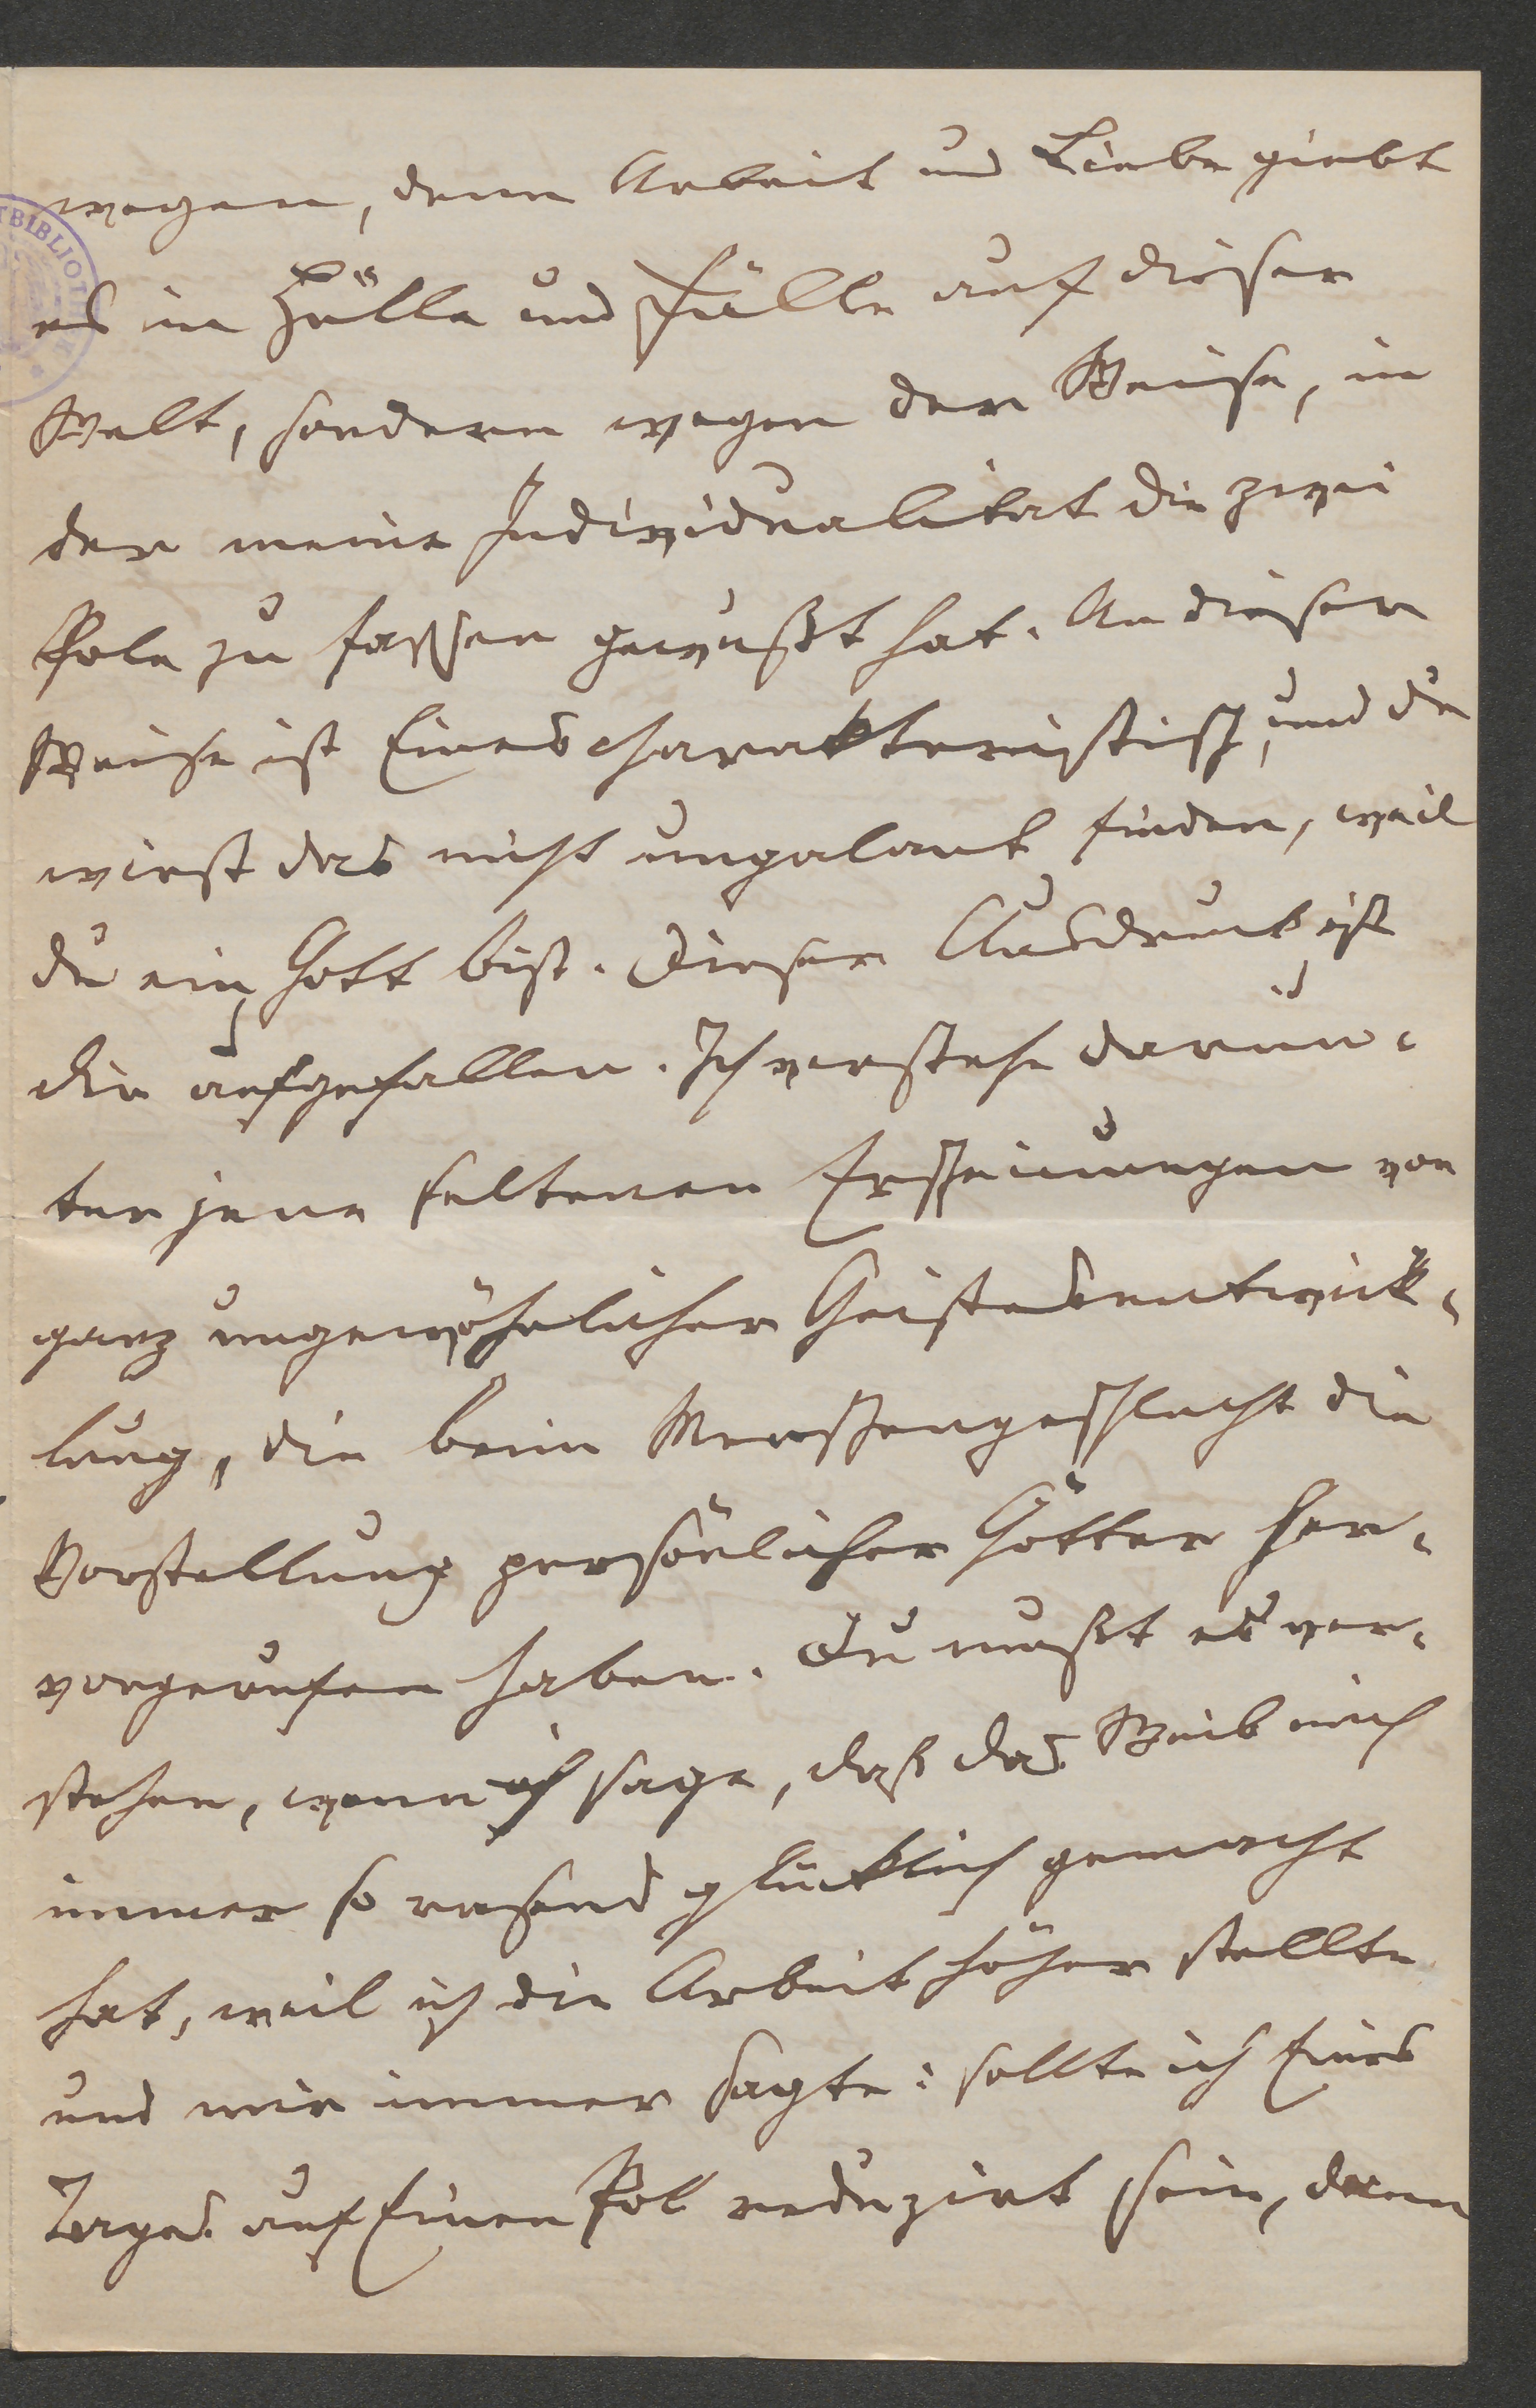 wegen, denn Arbeit und Liebe giebt
es in Hülle und Fülle auf dieser
Welt, sondern wegen der Weise, in
der meine Individualität die zwei
Pole zu fassen gewußt hat. An dieser
Weise ist Eines charakteristisch, und du
wirst das nicht ungalant finden, weil
du ein Gott bist. Dieser Ausdruck ist
dir aufgefallen. Ich verstehe darun-
ter jene seltenen Erscheinungen von
ganz ungewöhnlicher Geistesentwick-
lung, die beim Menschengeschlecht die
Vorstellung persönlicher Götter her-
vorgerufen haben. Du mußt es ver-
stehen, wenn ich sage, daß das Weib mich
immer so rasend glücklich gemacht
hat, weil ich die Arbeit höher stellte
und mir immer sagte: sollte ich Eines
Tages auf Einen Pol reduzirt sein, dann
TBIBLIOTH